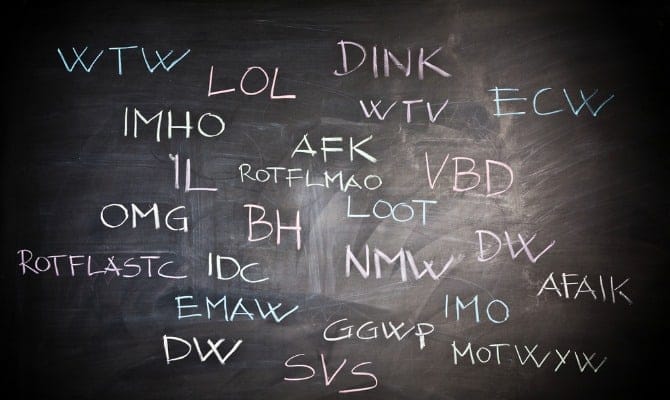 WTW
LOL
DINK
WTV
ECW
IMHO
AFK
IL
ROTFLMAO
VBD
OMG
BH
LOOT
ROTFLASTC
IDC
NMW
DW
AFAIK
EMAW
GGWP
IMO
DW
SVS
MOTWYW